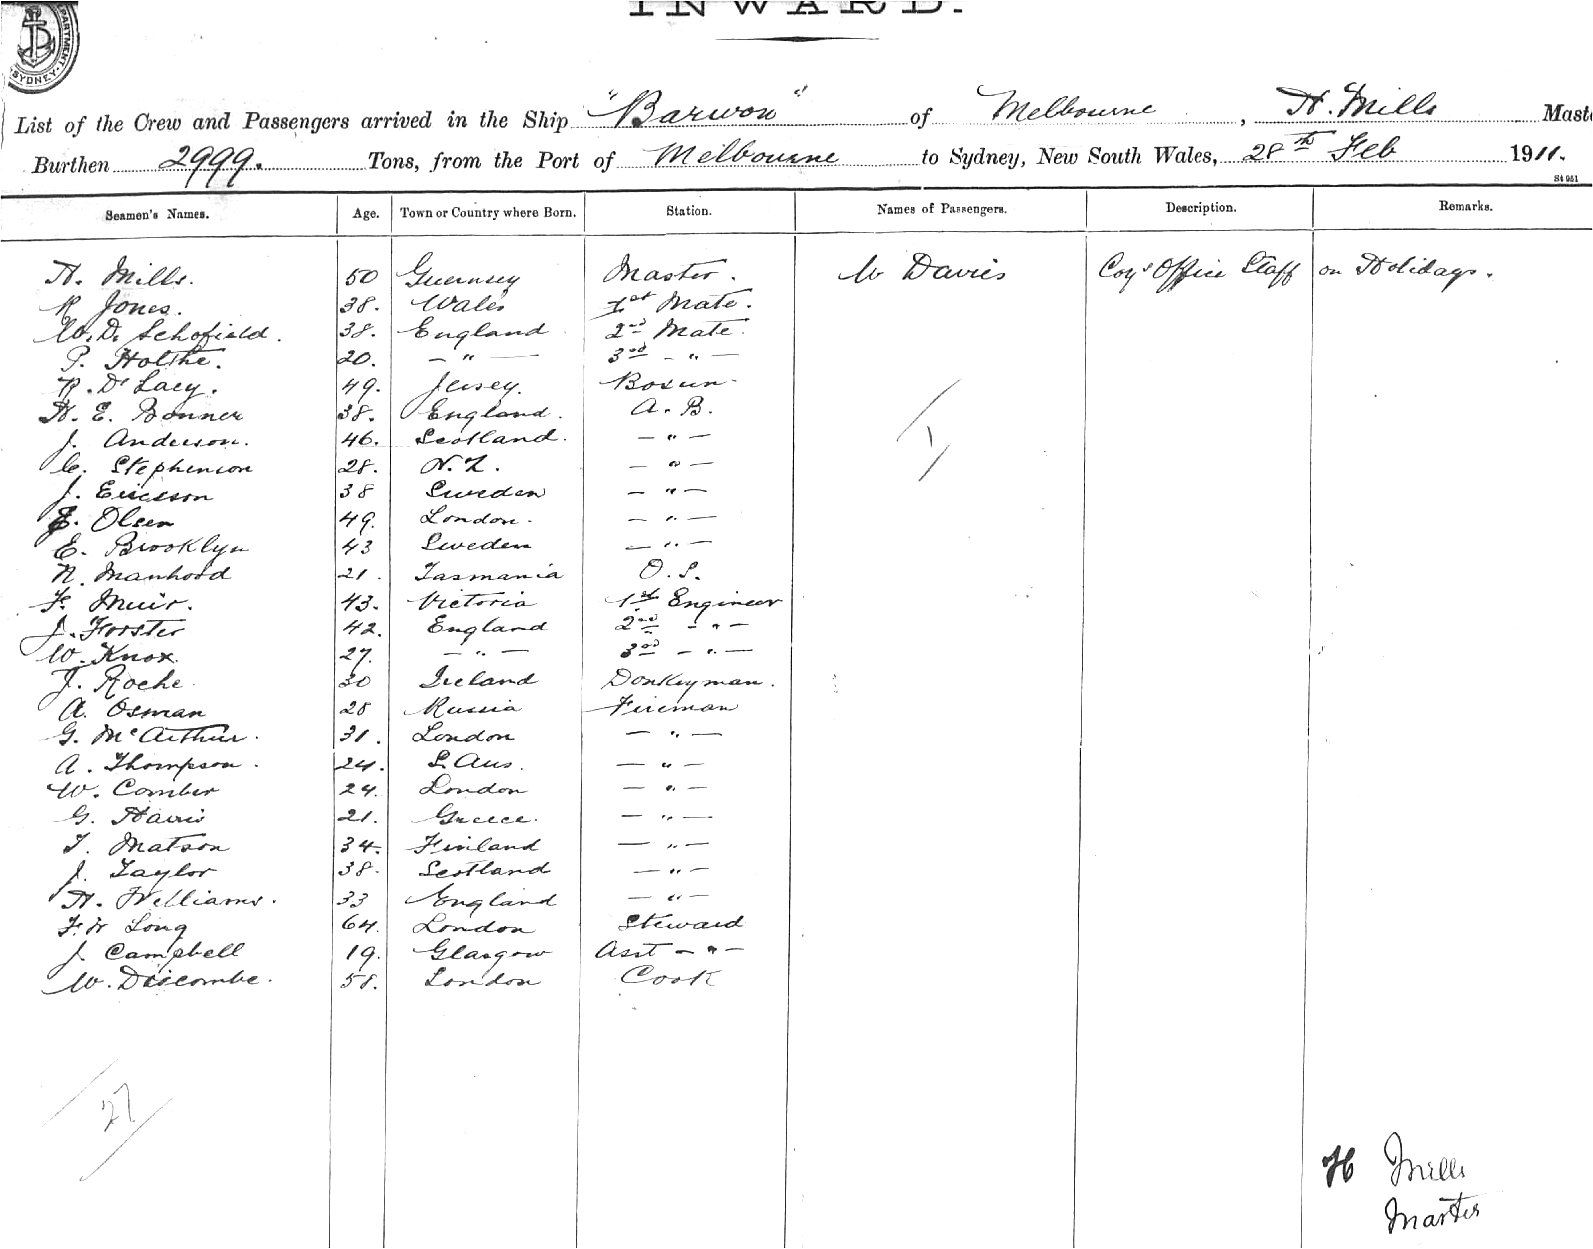 INWARD.
DEPARTMENT. SYDNEY.
List of the Crew and Passengers arrived in the Ship "Barwon" of Melbourne, H. Mills Maste
Burthen 2999. Tons, from the Port of Melbourne to Sydney, New South Wales, 28th Feb 1911.
St 951
Seamen's Names. Age. Town or Country where Born. Station. Names of Passengers. Description. Remarks.
H. Mills. 50 Guernsey Master. W Davies Coys Office Staff on Holidays.
R Jones. 38. Wales 1st Mate.
W. D. Schofield. 38. England 2nd Mate.
P. Holthe. 20. — " — 3rd - " —
R. De Lacy. 49. Jersey. Bosun.
H. E. Bonner 38. England. A. B.
J. Anderson. 46. Scotland. — " —
C. Stephenson 28. N. Z. — " —
J. Ericsson 38 Sweden — " —
Olsen 49. London. — " —
E. Brooklyn 43 Sweden — " —
N. Manhood 21. Tasmania O. S.
F. Muir. 43. Victoria 1st Engineer
J. Forster 42. England 2nd - " —
W. Knox. 27. — " — 3rd — " —
J. Roche 30 Ireland Donkeyman.
A. Osman 28 Russia Fireman
G. McArthur. 31. London — " —
A. Thompson. 24. S. Aus. — " —
W. Comber 24. London — " —
G. Harris 21. Greece. — " —
T. Matson 34. Finland — " —
J. Taylor 38. Scotland — " —
H. Williams. 33 England — " —
F. W Long 64. London Steward
J. Campbell 19. Glasgow Asst — " —
W. Discombe. 58. London Cook
1
27
H Mills
Master